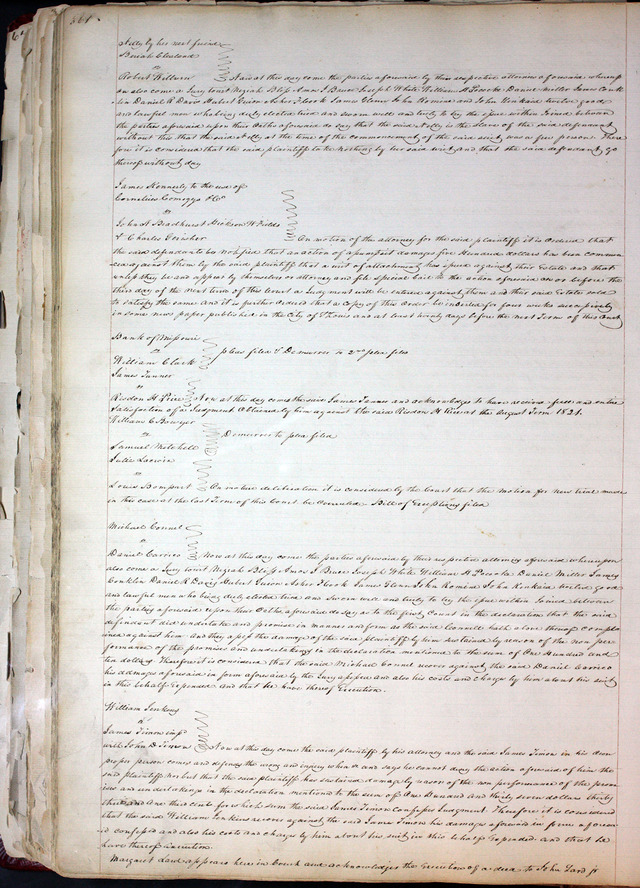 Polly by her next friend
Beriah Cleland
vs
Robert Wilburn And at this day come the parties aforesaid by their respective attornies aforesaid whereup
on also come a Jury towit Mezrah Bliss Amos J Bruce Joseph White William H Daniel Miller James Conk
lin Daniel R Davis Hubert Guion Asher Flook James Glenn John Romine and John Kinkaid twelve good
and lawful men who being duly elected tried and sworn well and truly to try the issue within Joined between
the parties aforesaid upon their Oaths aforesaid do say that the said Polly is the slave of the said defendant
without this that the said Polly at the time of the commencement of the said suit was a free person There
fore it is considered that the said plaintiff take nothing by her said writ And that the said defendant go
thereof without day
James Kennerly to the use of
Cornelius Comegys & Co
vs
John A Broadhurst Hickson W Fields
& Charles On motion of the attorney for the said plaintiff it is Ordered that
the said defendants be notified that an action of assumpsit damages five Hundred dollars has been commen
ced against them by the said plaintiff that a writ of attachment has issued against their Estate and that
unless they be and appear by themselves or attorney and file special bail to the action aforesaid on or before the
third day of the next term of this Court a Judgment will be entered against them and their said Estate sold
to satisfy the same And it is further ordered that a copy of this order be inserted for four weeks successively
in some news paper published in the City of St Louis and at least twenty days before the next Term of this Court
Bank of Missouri
vs pleas filed & Demurrer to 2nd plea filed
William Clark
James Tanner
vs
Risdon H Price Now at this day comes the said James Tanner and acknowledges to have received full and entire
Satisfaction of a Judgment obtained by him against the said Risdon H Price at the August Term 1821.
William C Bowyer
vs Demurrer to plea filed
Samuel Mitchell
Julie Lacroix
vs
Louis Bompart On mature deliberation it is considered by the Court that the motion for new trial made
in this case at the last Term of this Court be Overruled Bill of Exceptions filed
Michael Connel
vs
Daniel Carrico Now at this day come the parties aforesaid by their respective attornies aforesaid whereupon
also come a Jury towit Mezrah Bliss Amos J Bruce Joseph White William H Daniel Miller James
Conklin Daniel R Davis Hubert Guion Asher Flook James Glenn John Romine John Kinkaid twelve good
and lawful men who being duly elected tried and Sworn well and truly to try the issue within Joined between
the parties aforesaid upon their Oaths aforesaid do say as to the first Count in the declaration that the said
defendant did undertake and promise in manner and form as the said Connell hath above thereof complai
ned against him And they assess the damages of the said plaintiff by him sustained by reason of the non per
formance of the promises and undertakings in the declaration mentioned to the sum of One Hundred and
ten dollars Therefore it is considered that the said Michael Connel recover against the said Daniel Carrico
his damages aforesaid in form aforesaid by the Jury assessed and also his costs and charges by him about his suit
in this behalf Expended And that he have thereof Execution.
William Jenkins
vs
James Timon impd
with John D Timon Now at this day come the said plaintiff by his attorney and the said James Timon in his own
proper person comes and defends the wrong and injury when &c and says he cannot deny the action aforesaid of him the
said plaintiff nor but that the said plaintiff has sustained damage by reason of the non performance of the prom
ises and undertakings in the declaration mentioned to the sum of One Hundred and thirty seven dollars thirty
three and One third cents for which sum the said James Timon confesses Judgment Therefore it is considered
that the said William Jenkins recover against the said James Timon his damages aforesaid in form aforesai
d confessed and also his costs and charges by him about his suit in this behalf Expended and that he
have thereof execution
Margaret Lard appears here in Court and acknowledges the Execution of a deed to John Lard jr